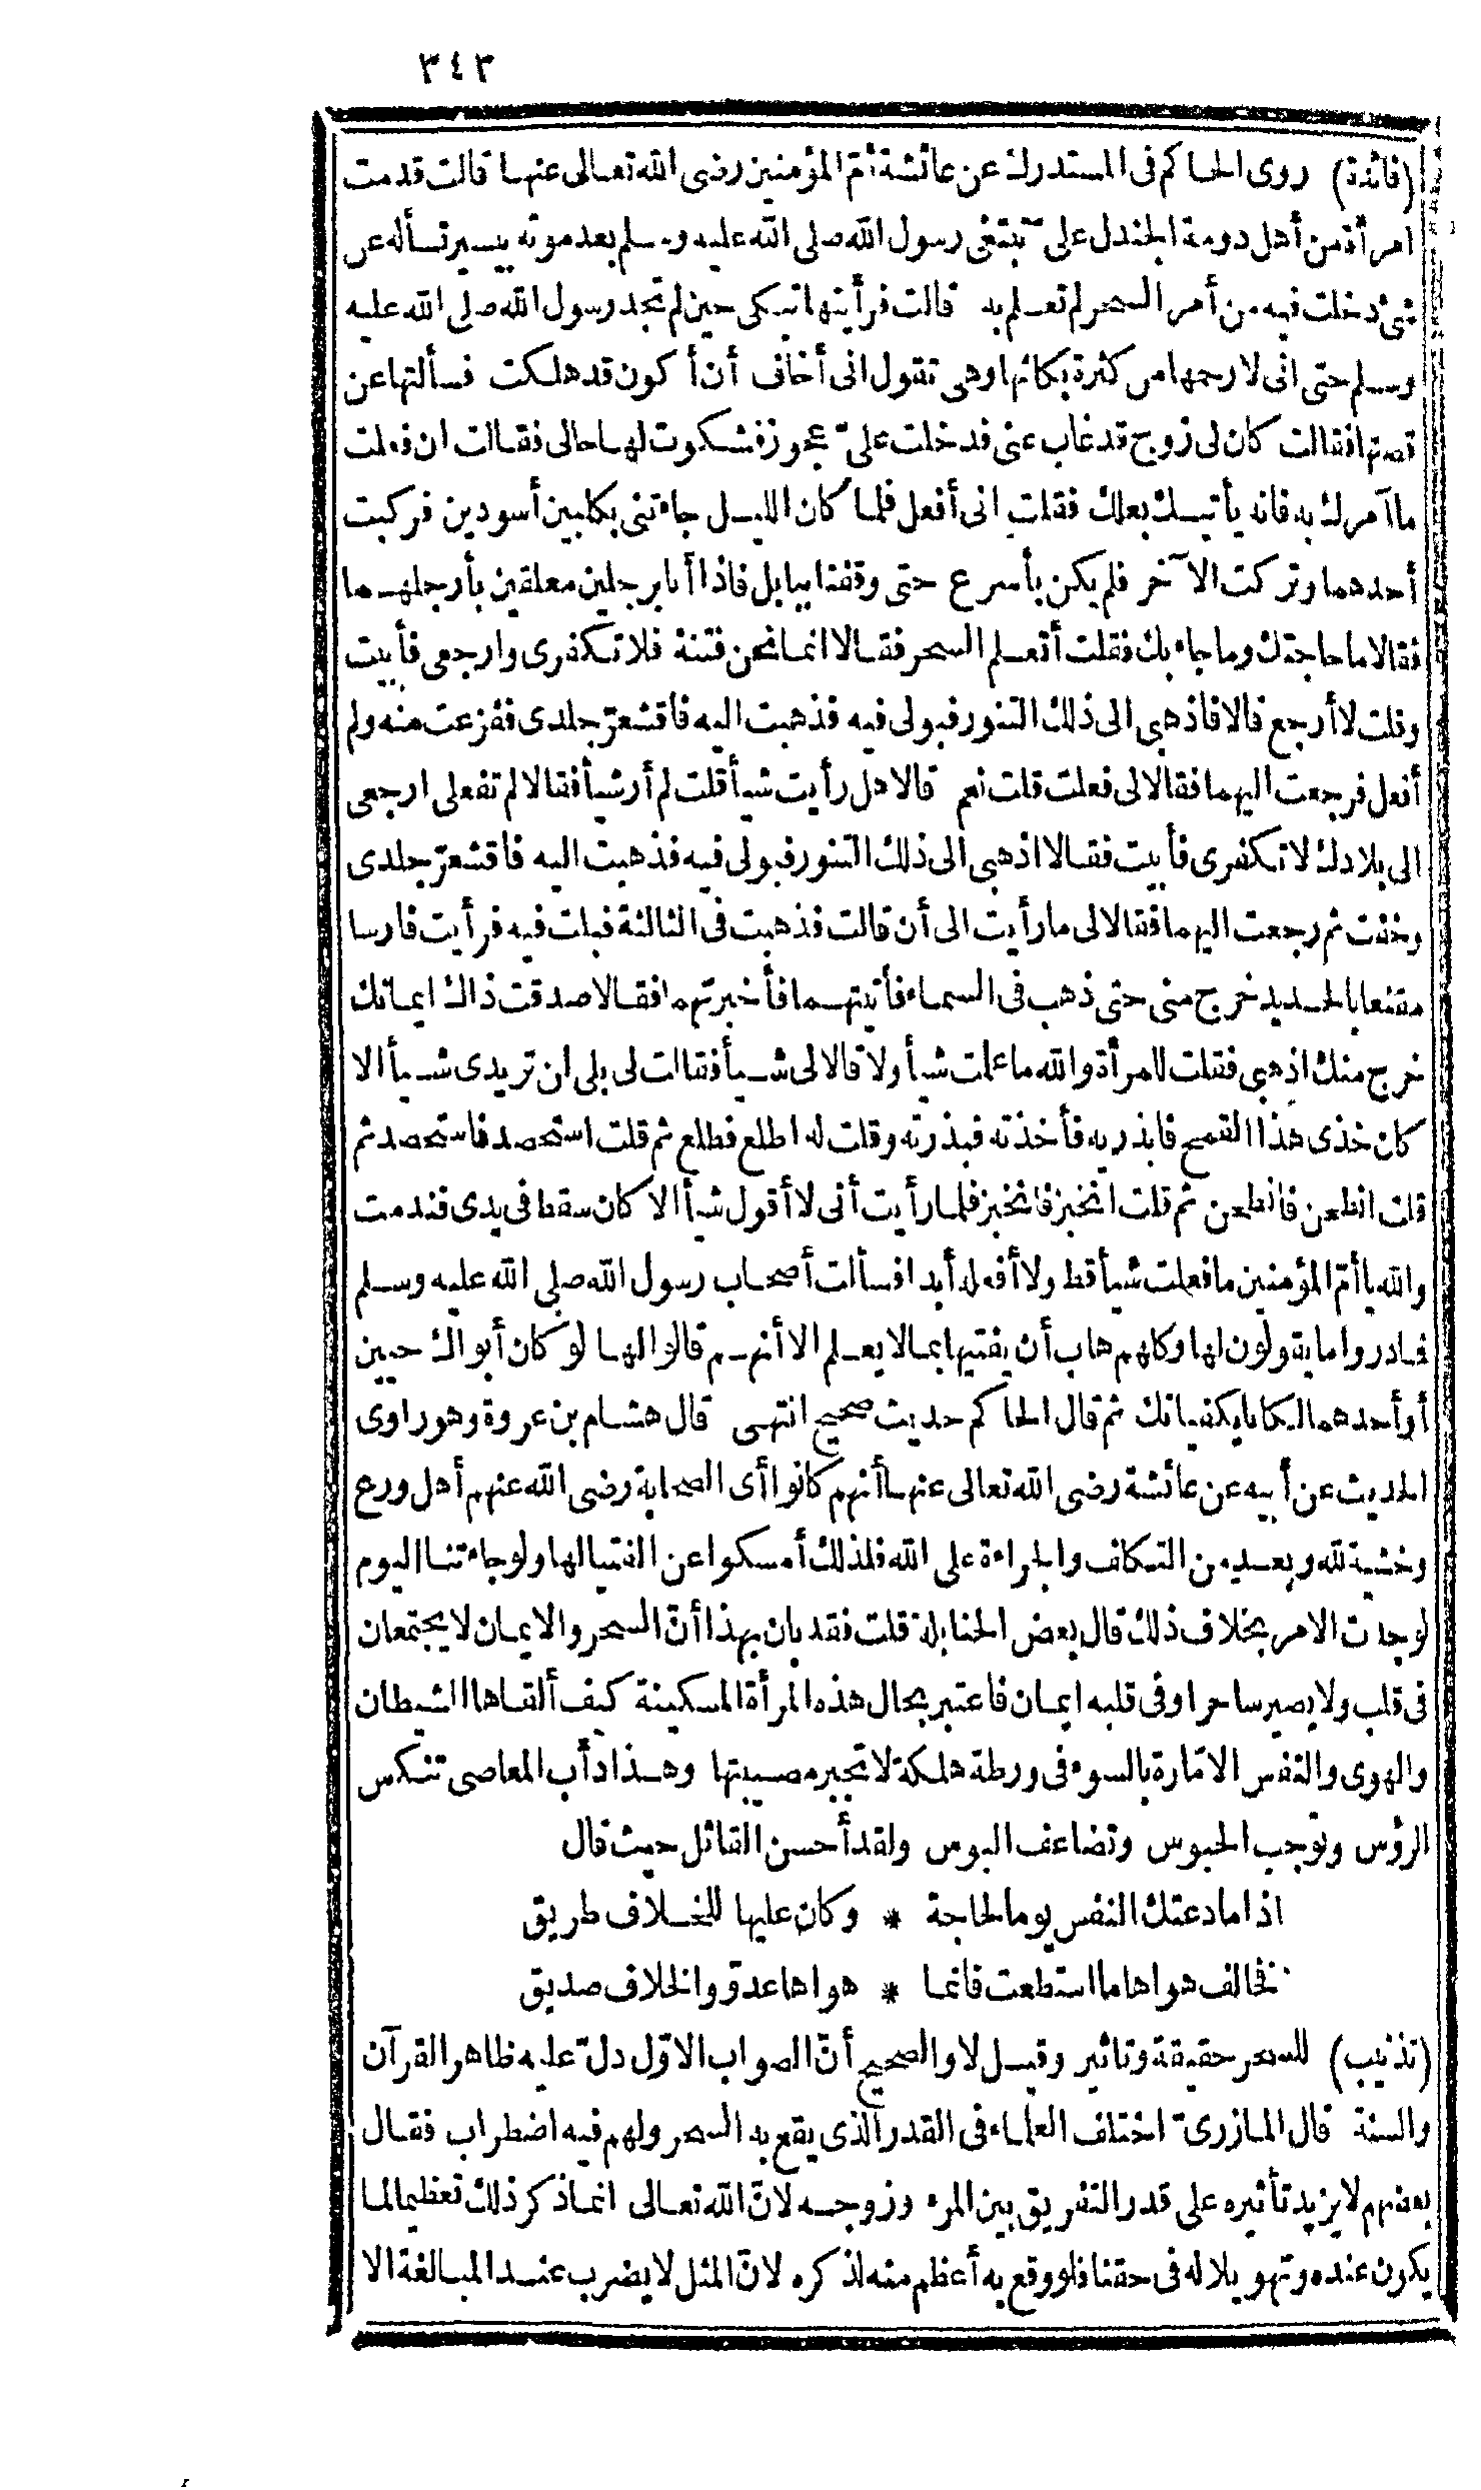 ٣٤٣
(فائدة) روى الحاكم فى المستدرك عن عائشة أمّ المؤمنين رضى الله تعالى عنها قالت قدمت
امرأة من أهل دومة الجندل علىّ تبتغى رسول الله صلى الله عليه وسلم بعد موته بيسير تسأله عن
شئ دخلت فيه من أمر السحر لم تعلم به قالت فرأيتها تبكى حين لم تجد رسول الله صلى الله عليه
وسلم حتى انى لارحمها من كثرة بكائها وهى تقول انى أخاف أن أكون قد هلكت فسألتها عن
قصتها فقالت كان لى زوج قد غاب عنى فدخلت علىّ عجوز فشكوت لها حالى فقالت ان فعلت
ما آمرك به فانه يأتيك بعلك فقلت انى أفعل فلما كان الليل جاءتنى بكلبين أسودين فركبت
أحدهما وتركت الآخر فلم يكن بأسرع حتى وقفنا ببابل فاذا أنا برجلين معلقين بأرجلهما
فقالا ما حاجتك وما جاء بك فقلت أتعلم السحر فقالا انما نحن فتنة فلا تكفرى وارجعى فأبيت
وقلت لا أرجع قالا فاذهبى الى ذلك التنور فبولى فيه فذهبت اليه فاقشعرّ جلدى ففزعت منه ولم
أفعل فرجعت اليهما فقالا لى فعلت قلت نعم قالا هل رأيت شيأ قلت لم أر شيأ فقالا لم تفعلى ارجعى
الى بلادك لا تكفرى فأبيت فقالا اذهبى الى ذلك التنور فبولى فيه فذهبت اليه فاقشعرّ جلدى
وخفت ثم رجعت اليهما فقالا لى ما رأيت الى أن قالت فذهبت فى الثالثة فبلت فيه فرأيت فارسا
مقنعا بالحديد خرج منى حتى ذهب فى السماء فأتيتهما فأخبرتهما فقالا صدقت ذاك ايمانك
خرج منك اذهبى فقلت للمرأة والله ما علمت شيأ ولا قالا لى شيأ فقالت لى بلى ان تريدى شيأ الا
كان خذى هذا القمح فابذريه فأخذته فبذرته وقلت له اطلع فطلع ثم قلت استحصد فاستحصد ثم
قلت انطحن فانطحن ثم قلت انخبز فانخبز فلما رأيت أنى لا أقول شيأ الا كان سقط فى يدى فندمت
والله يا أمّ المؤمنين ما فعلت شيأ قط ولا أفعله أبدا فسألت أصحاب رسول الله صلى الله عليه وسلم
فما دروا ما يقولون لها وكلهم هاب أن يفتيها بما لا يعلم الا أنهم قالوا لها لو كان أبواك حيين
أو أحدهما لكانا يكفيانك ثم قال الحاكم حديث صحيح انتهى قال هشام بن عروة وهو راوى
الحديث عن أبيه عن عائشة رضى الله تعالى عنها أنهم كانوا أى الصحابة رضى الله عنهم أهل ورع
وخشية لله وبعد من التكلف والجراءة على الله فلذلك أمسكوا عن الفتيا لها ولو جاءتنا اليوم
لوجدت الامر بخلاف ذلك قال بعض الحنابلة قلت فقد بان بهذا أنّ السحر والايمان لا يجتمعان
فى قلب ولا يصير ساحرا وفى قلبه ايمان فاعتبر بحال هذه المرأة المسكينة كيف ألقاها الشيطان
والهوى والنفس الامّارة بالسوء فى ورطة هلكة لا تجبر مصيبتها وهذا دأب المعاصى تنكس
الرؤس وتوجب الحبوس وتضاعف البوس ولقد أحسن القائل حيث قال
اذا ما دعتك النفس يوما لحاجة * وكان عليها للخلاف طريق
فخالف هواها ما استطعت فانما * هواها عدوّ والخلاف صديق
(تذنيب) للسحر حقيقة وتاثير وقيل لا والصحيح أنّ الصواب الاوّل دلّ عليه ظاهر القرآن
والسنة قال المازرىّ اختلف العلماء فى القدر الذى يقع به السحر ولهم فيه اضطراب فقال
بعضهم لا يزيد تأثيره على قدر التفريق بين المرء وزوجه لانّ الله تعالى انما ذكر ذلك تعظيما لما
يكون عنده وتهويلا له فى حقنا فلو وقع به أعظم منه لذكره لانّ المثل لا يضرب عند المبالغة الا